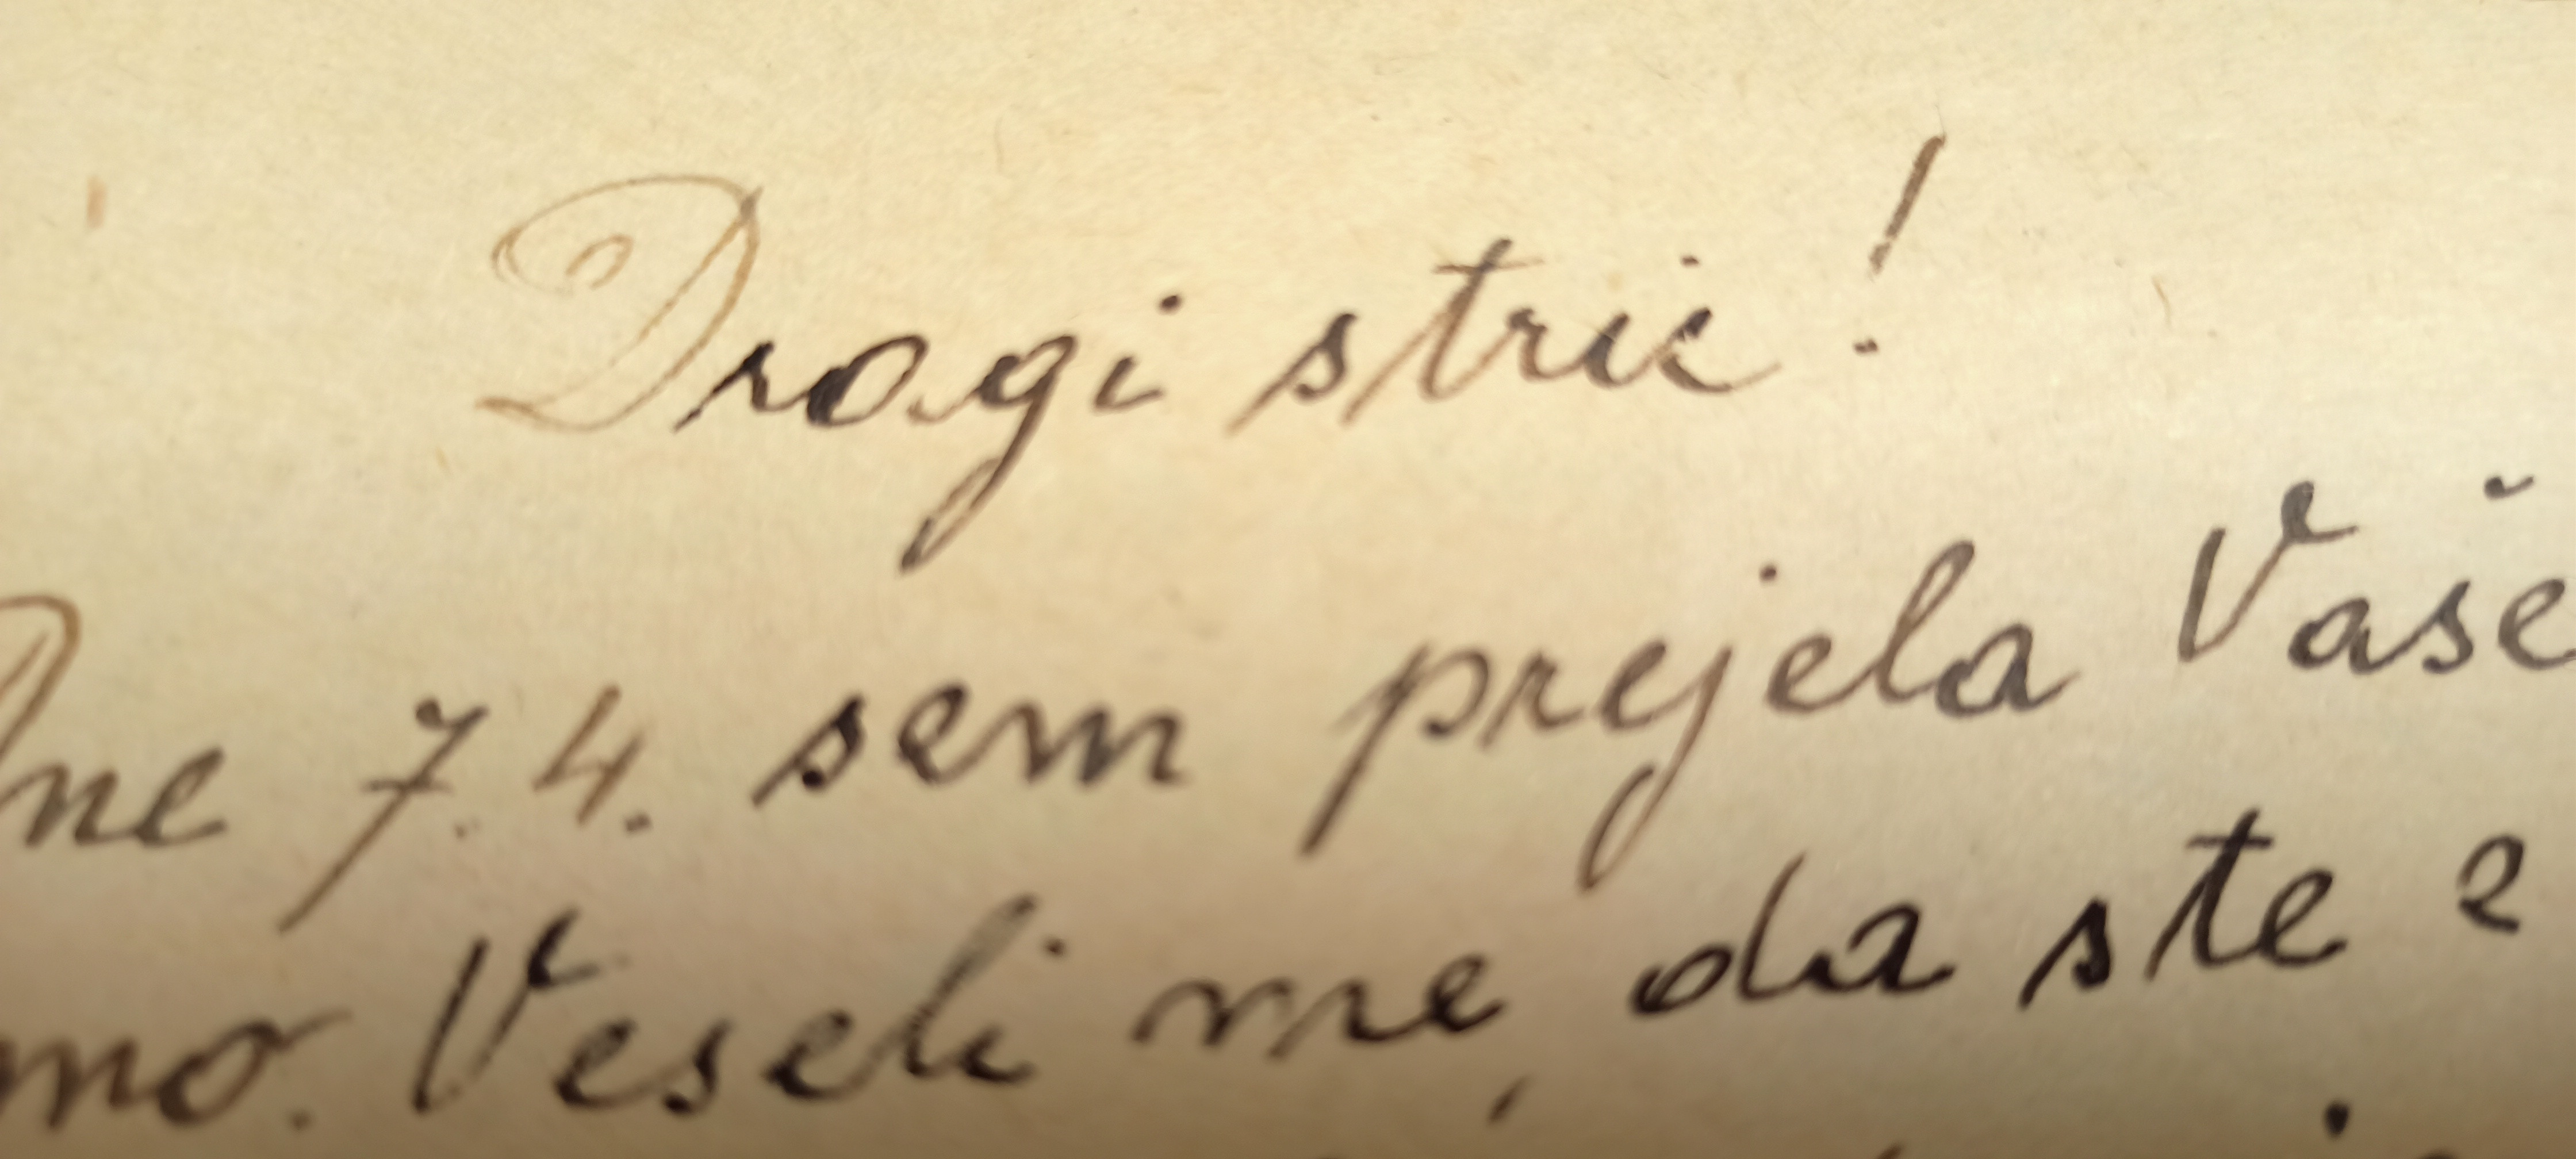 Dragi stric!
Dne 7.4. sem prejela Vaše
mo. Veseli me, da ste